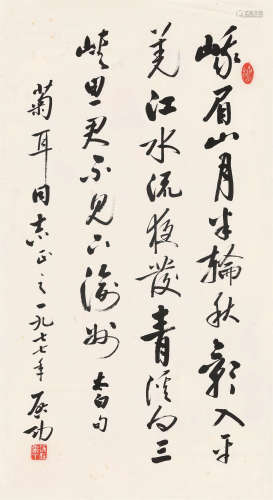 峨眉山月半輪秋影入平
羌江水流夜發青溪向三
峡思君不見下渝州 太白句
菊耳同志正之一九七七年 啓功